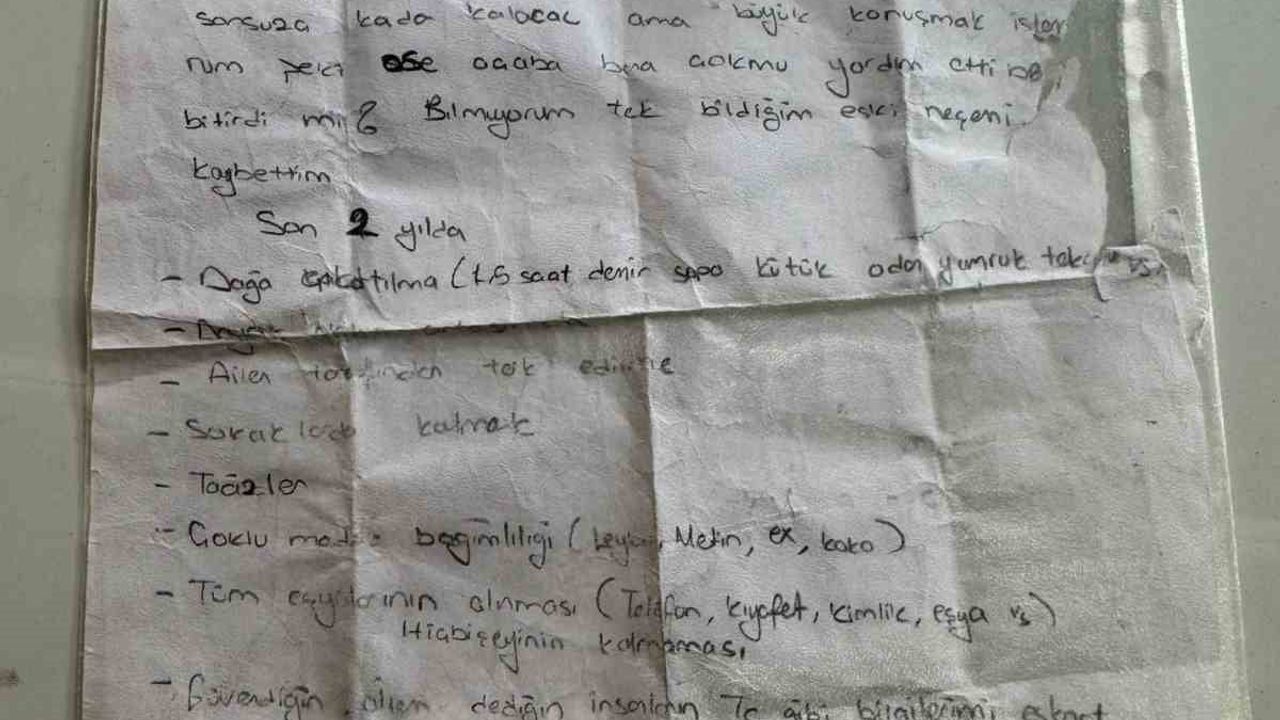 sonsuza kada kalacac ama büyük konuşmak ister
num peki ose acaba bna cokmu yordım etti
bitirdi mi? Bilmiyorum tek bildiğim eski neşemi
kaybettim
Son 2 yılda
- Dağa çıkatılma (1.5 saat demir sapo kütük odon yumruk tokat vs.
- Ailen tarfınden tek
- Sokaklada kalmak
- Tacizler
- Coklu madde bağımlılıği (, Metin, ex, koko)
- Tüm eşyalarının alınması (Telefon, kıyafet, kimlik, eşya vs)
Hiçbişeyinin kalmaması
- Güvendiğin ailem dediğin insanların Tc gibi bilgilerimi